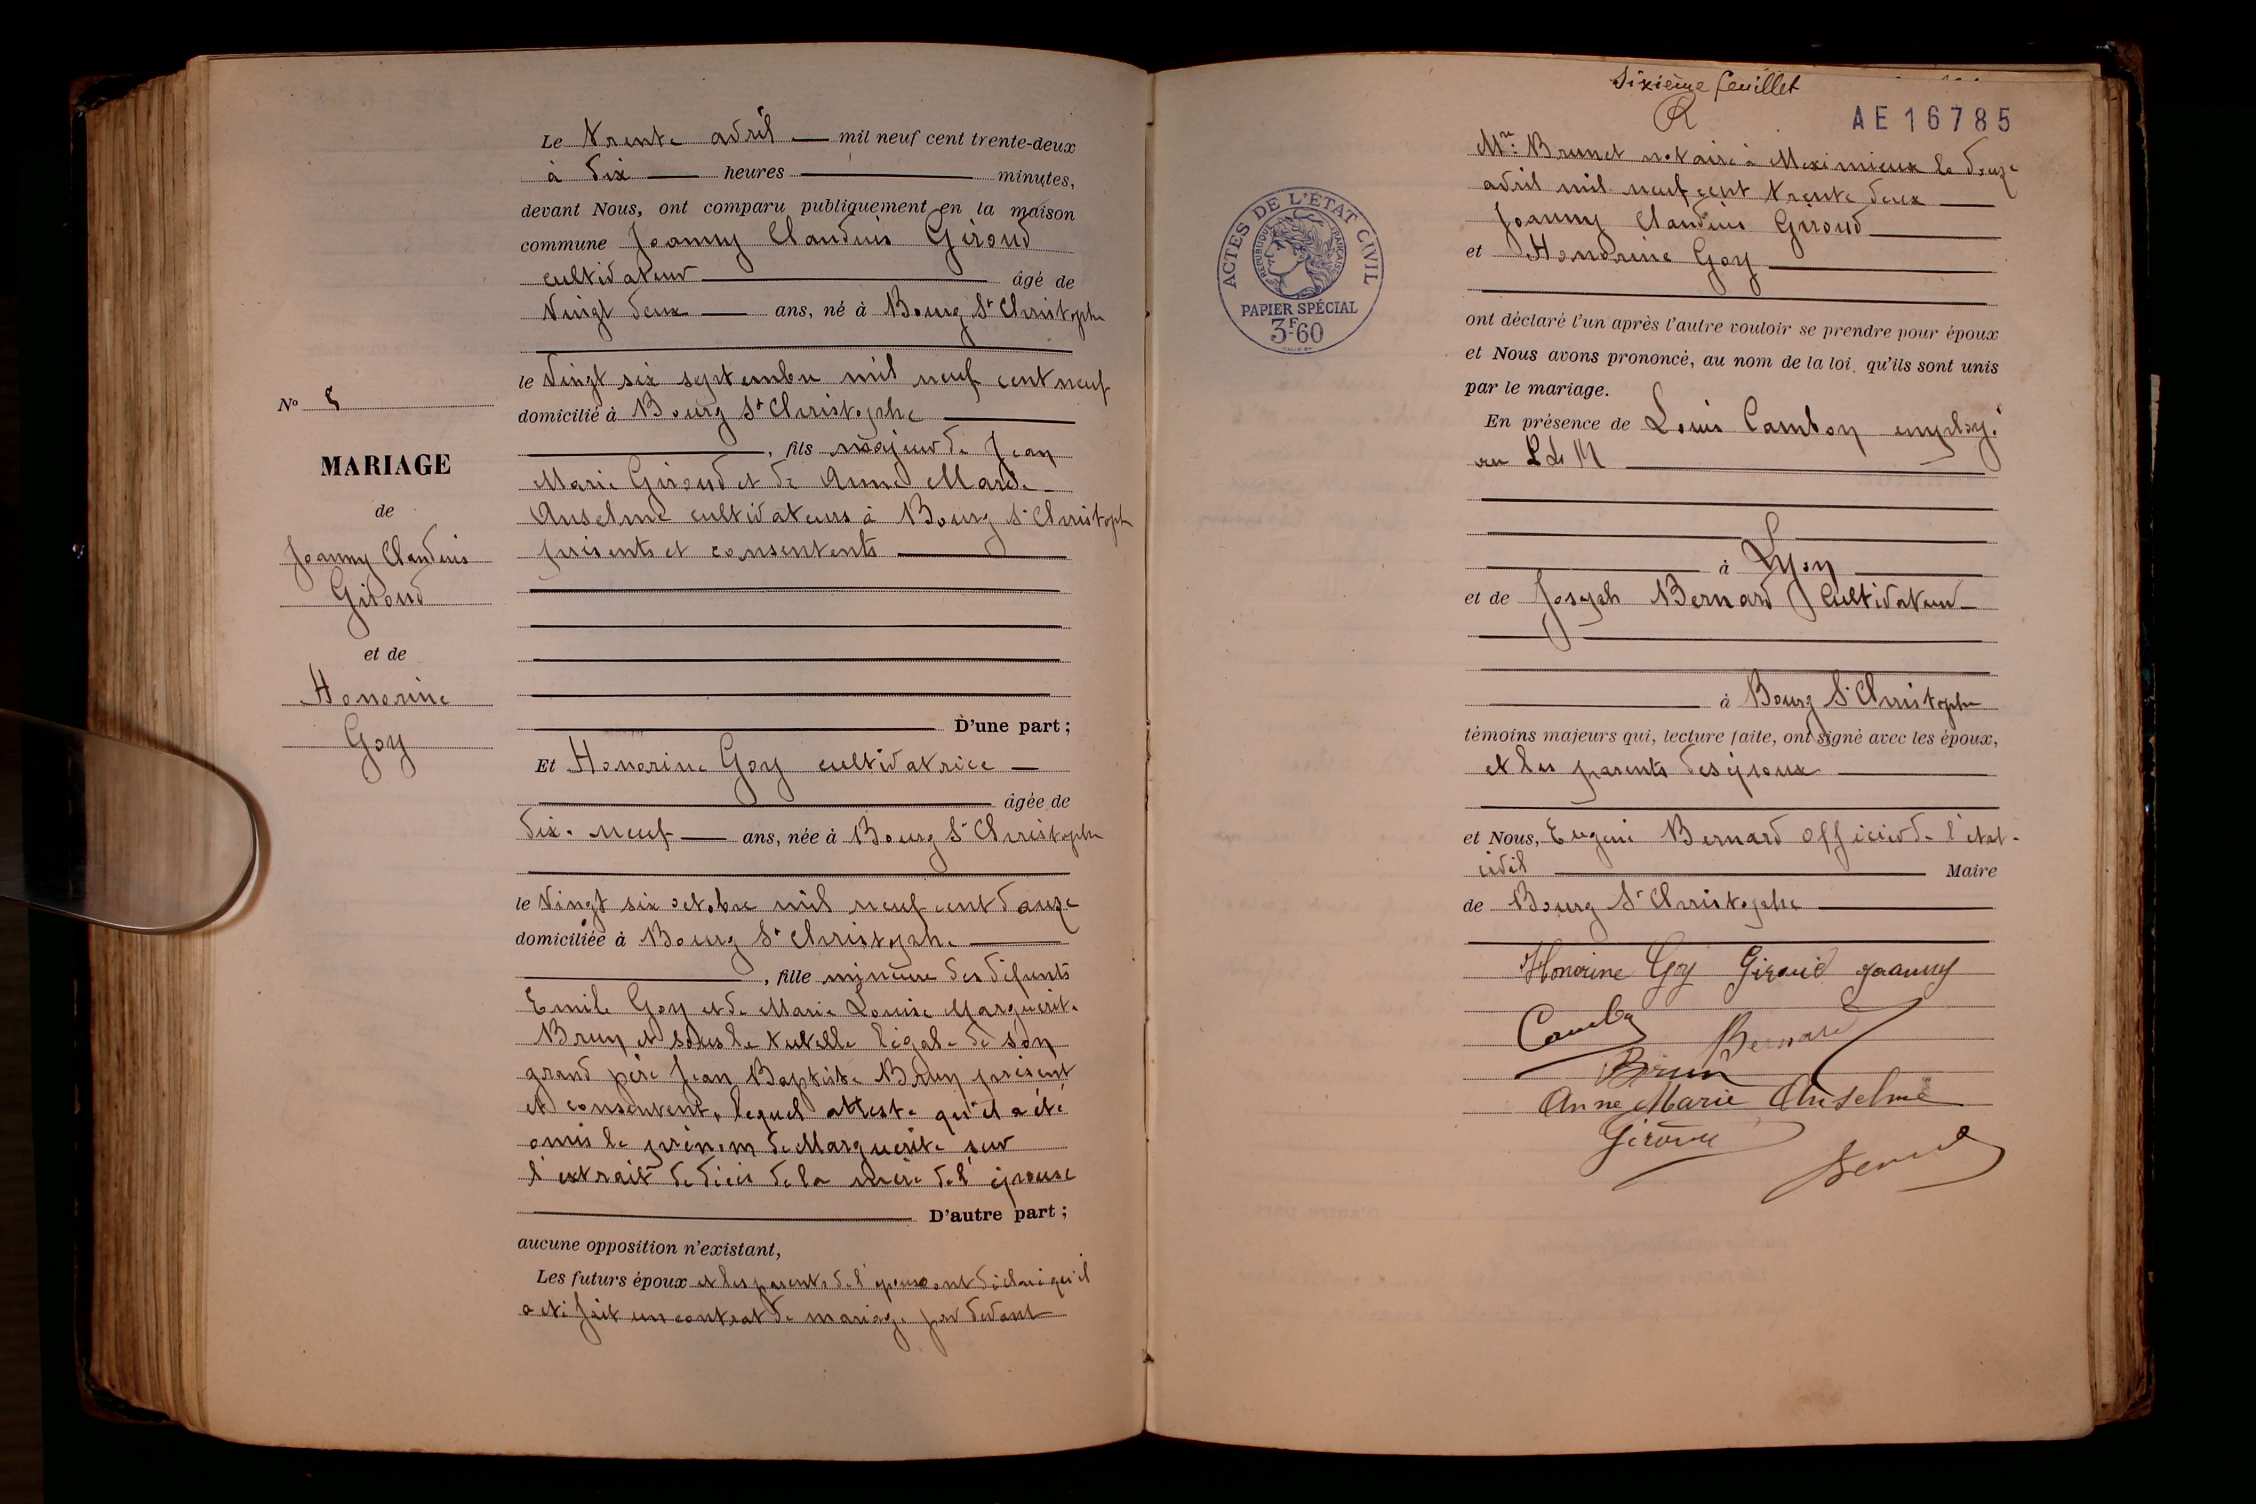 Le trente avril — mil neuf cent trente-deux
à dix — heures — minutes,
devant Nous, ont comparu publiquement en la maison
commune Joanny Claudius Giroud
cultivateur — âgé de
vingt deux — ans, né à Bourg St Christophe
le vingt six septembre mil neuf cent neuf
domicilié à Bourg St Christophe
, fils majeur de Jean
Marie Giroud et de Anne Marie
Anselme cultivateurs à Bourg St Christophe
présents et consentents
D'une part ;
N° 5
MARIAGE
de
Joanny Claudius
Giroud
et de
Honorine
Goy
Et Honorine Goy cultivatrice —
âgée de
dix-neuf — ans, née à Bourg St Christophe
le vingt six octobre mil neuf cent douze
domiciliée à Bourg St Christophe
, fille mineure des défunts
Emile Goy et de Marie Louise Marguerite
Brun et sous la tutelle légale de son
grand père Jean Baptiste Brun présent
et consentent, lequel atteste qu'il a été
omis le prénom de Marguerite sur
l'extrait de décès de la mère de l'épouse
D'autre part ;
aucune opposition n'existant,
Les futurs époux et les parents de l'épouse ont déclaré qu'il
a été fait un contrat de mariage par devant
Sixième feuillet
AE16785
ACTES DE L'ÉTAT CIVIL
RÉPUBLIQUE FRANÇAISE
PAPIER SPÉCIAL
3F60
Mre Brunet notaire à Meximieux le douze
avril mil neuf cent trente deux
Joanny Claudius Giroud
et Honorine Goy
ont déclaré l'un après l'autre vouloir se prendre pour époux
et Nous avons prononcé, au nom de la loi, qu'ils sont unis
par le mariage.
En présence de Louis Cambon employé
au
à Lyon
et de Joseph Bernard Cultivateur
à Bourg St Christophe
témoins majeurs qui, lecture faite, ont signé avec les époux,
et les parents des époux
et Nous, Eugène Bernard officier de l'état-
civil — Maire
de Bourg St Christophe
Honorine Goy Giroud Joanny
Bernard
Brun
Anne Marie Anselme
Giroud